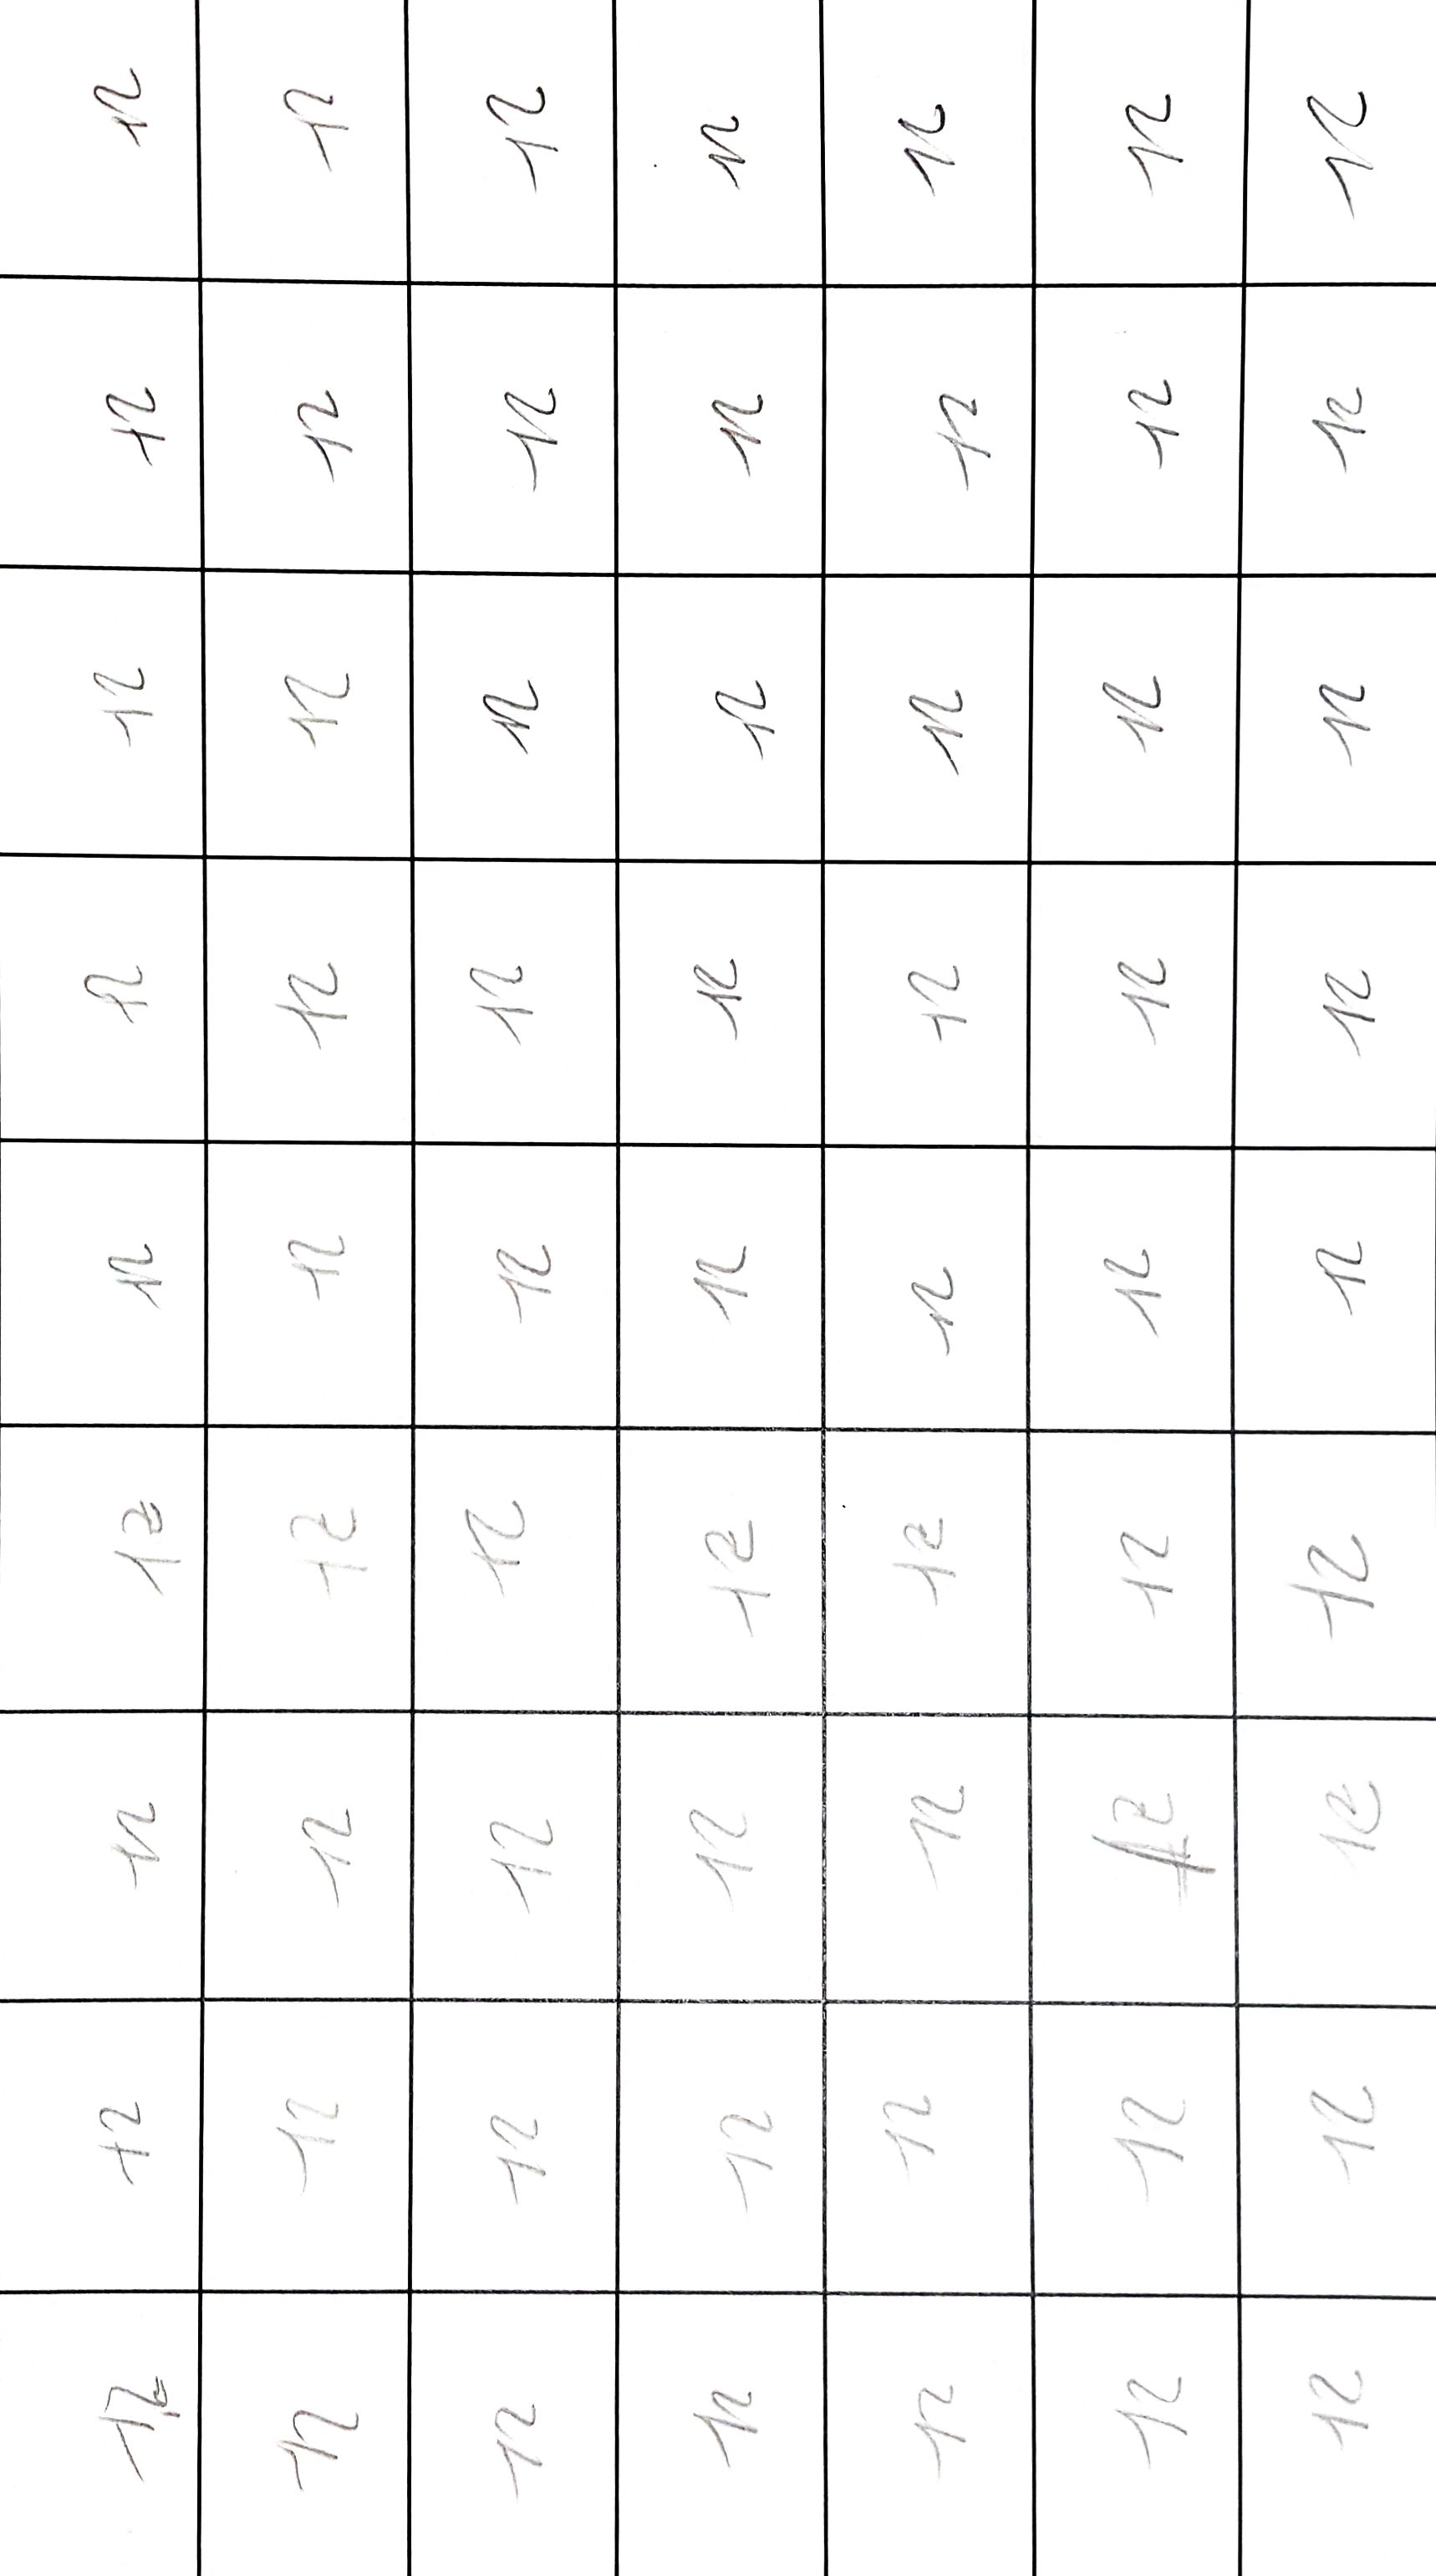 라 라 라 라 라 라 라 라 라
라 라 라 라 라 라 라 라
라 라 라 라 라 라 라 라 라
라 라 라 라 라 라 라 라 라
라 라 라 라 라 라 라 라 라
라 라 라 라 라 라 라 라 라
라 라 라 라 라 라 라 라 라